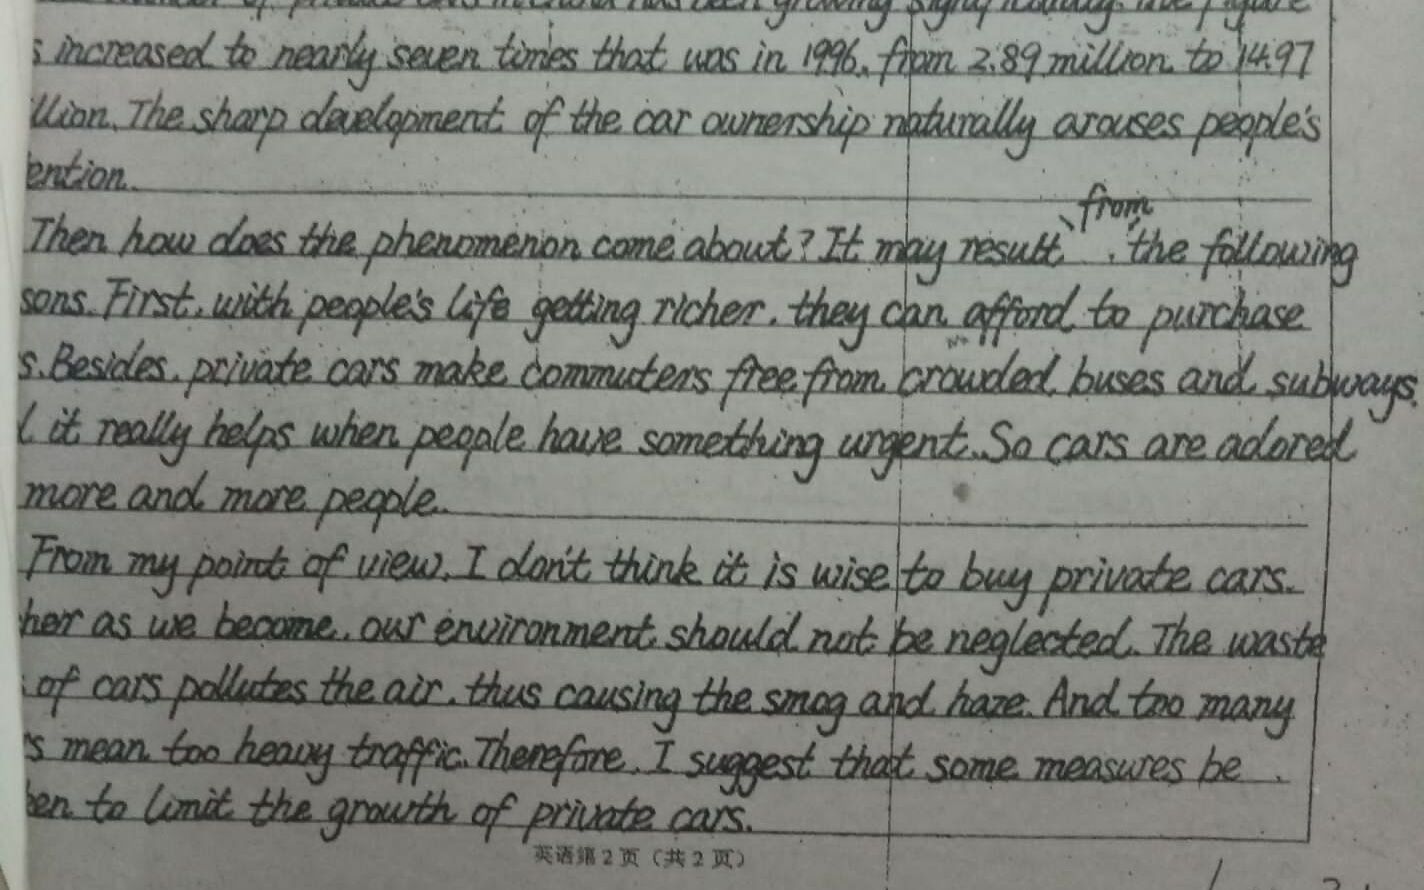 of private cars in China has been growing significantly. The figure
s increased to nearly seven times that was in 1996, from 2.89 million to 14.97
llion. The sharp development of the car ownership naturally arouses people's
ention.
from
Then how does the phenomenon come about? It may result the following
sons. First, with people's life getting richer, they can afford to purchase
s. Besides, private cars make commuters free from crowded buses and subways.
it really helps when people have something urgent. So cars are adored
more and more people.
From my point of view, I don't think it is wise to buy private cars.
her as we become, our environment should not be neglected. The waste
of cars pollutes the air, thus causing the smog and haze. And too many
s mean too heavy traffic. Therefore, I suggest that some measures be
ken to limit the growth of private cars.
英语第2页（共2页）